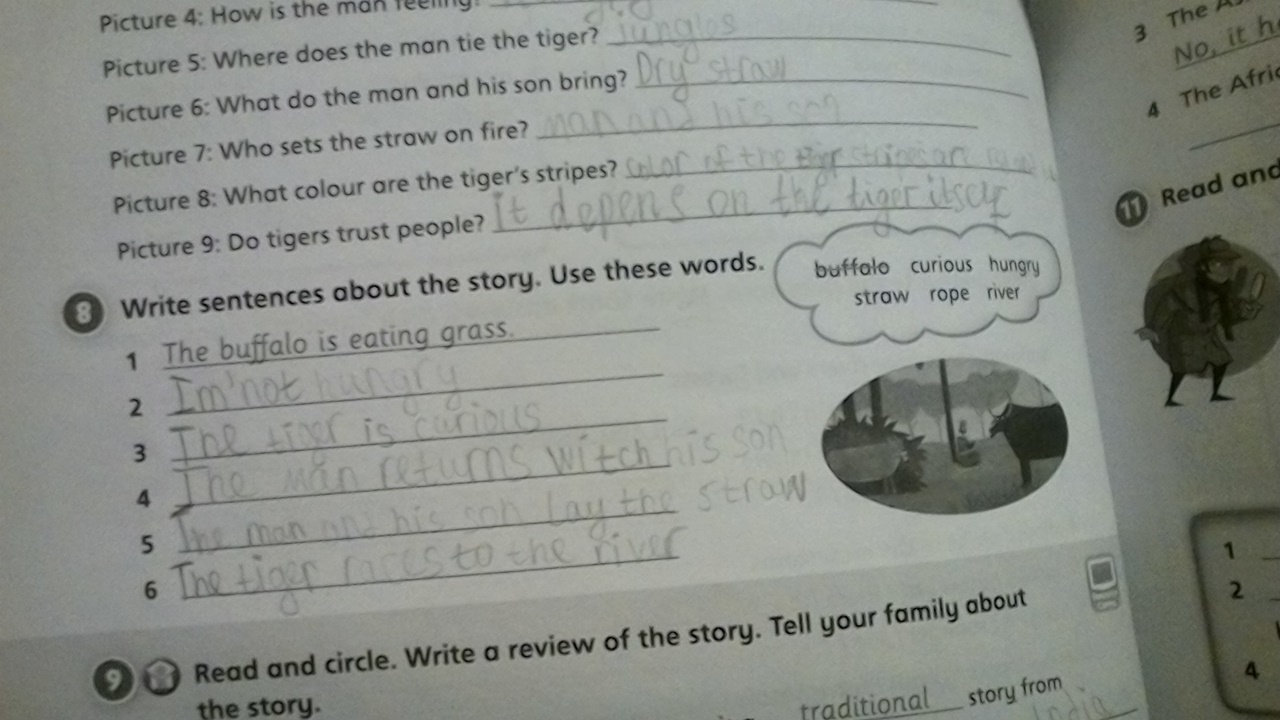 Picture 4: How is the man feeling?
Picture 5: Where does the man tie the tiger? jungles
Picture 6: What do the man and his son bring? Dry straw
Picture 7: Who sets the straw on fire? man and his son
Picture 8: What colour are the tiger's stripes? color of the stripes are
Picture 9: Do tigers trust people? it depens on the tiger itself
8 Write sentences about the story. Use these words.
buffalo curious hungry
straw rope river
1 The buffalo is eating grass.
2 Im'not hungry
3 The tiger is curious
4 The man returns witch his son
5 The man and his son lay the straw
6 The tiger races to the river
9 Read and circle. Write a review of the story. Tell your family about
the story.
traditional story from
India
3 The
No, it
4 The
11 Read and
1
2
4